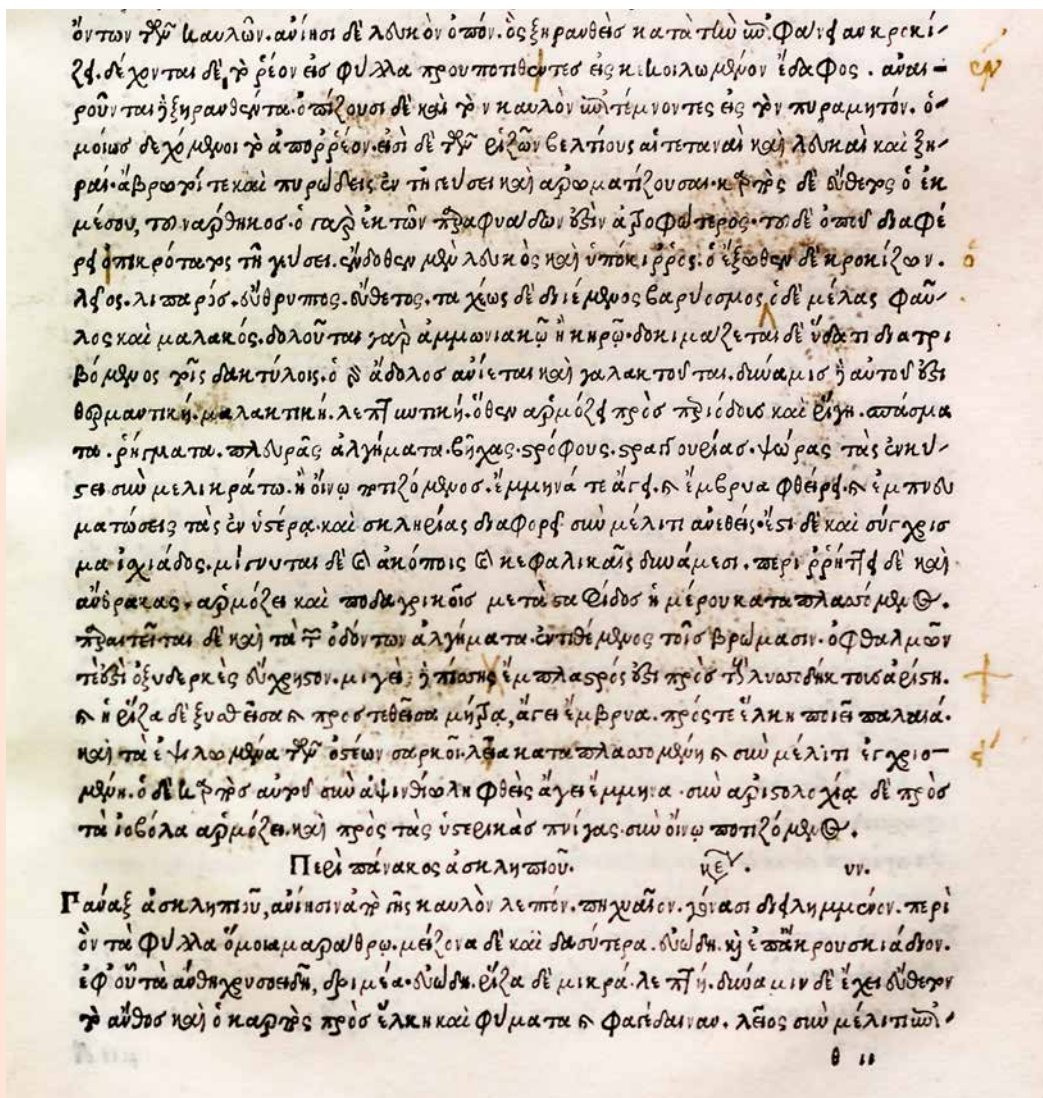 όντων τῶν καυλῶν. ἀνίησι δὲ λευκὸν ὀπόν. ὃς ξηρανθεὶς κατὰ τὴν ἐπιφάνειαν κροκί-
ζει. δέχονται δὲ τὸ ῥέον εἰς φύλλα προυποτιθέντες εἰς κεκοιλωμένον ἔδαφος. ἀναι-
ροῦνται ἢ ξηρανθέντα. ὀπίζουσι δὲ καὶ τὸν καυλὸν ἐπιτέμνοντες εἰς τὸν πυραμητόν. ὁ-
μοίως δεχόμενοι τὸ ἀπορρέον. εἰσὶ δὲ τῶν ῥιζῶν βελτίους αἱ τεταναὶ καὶ λευκαὶ καὶ ξη-
ραί. ἄβρωτοί τε καὶ πυρώδεις ἐν τῇ γεύσει καὶ ἀρωματίζουσαι. καρπὸς δὲ εὔθετος ὁ ἐκ
μέσου, τοῦ νάρθηκος. ὁ γὰρ ἐκ τῶν παραφυάδων ἐστὶν ἀτροφώτερος. τοῦ δὲ ὀποῦ διαφέ
ρει ὁ πικρότατος τῇ γεύσει. ἔνδοθεν μὲν λευκὸς καὶ ὑπόκιρρος. ὁ ἔξωθεν δὲ κροκίζων.
λεῖος. λιπαρός. εὔθρυπτος. εὔθετος. ταχέως δὲ διέμενος βαρύοσμος, ὁ δὲ μέλας φαῦ-
λος καὶ μαλακός. δολοῦται γὰρ ἀμμωνιακῷ ἢ κηρῷ. δοκιμάζεται δὲ ὕδατι διατρι
βόμενος τοῖς δακτύλοις. ὁ γὰρ ἄδολος ἀνίεται καὶ γαλακτοῦται. δύναμις ἢ αὐτοῦ ἐστὶ
θερμαντική. μαλακτική. λεπτυντική. ὅθεν ἁρμόζει πρὸς περιόδους καὶ ῥίγη. σπάσμα
τα. ῥήγματα. πλευρᾶς ἀλγήματα. βῆχας. στρόφους. στραγγουρίας. ψώρας τὰς ἐν κύ-
στει σὺν μελικράτω. ἢ οἴνῳ ποτιζόμενος. ἔμμηνά τε ἄγει. καὶ ἔμβρυα φθείρει. καὶ ἐμπνευ
ματώσεις τὰς ἐν ὑστέρᾳ. καὶ σκληρίας διαφορεῖ σὺν μέλιτι ἀνεθείς. ἔστι δὲ καὶ σύγχρισ
μα ἰσχιάδος. μίγνυται δὲ καὶ ἀκόποις καὶ κεφαλικαῖς δυνάμεσι. περιρρήττει δὲ καὶ
ἄνθρακας. ἁρμόζει καὶ ποδαγρικοῖς μετὰ σταφίδος ἡμέρου καταπλασσόμενος.
παραιτεῖται δὲ καὶ τὰ τῶν ὀδόντων ἀλγήματα. ἐντιθέμενος τοῖς βρώμασιν. ὀφθαλμῶν
τέ ἐστι ὀξυδερκὲς εὔχρηστον. μιγεὶς ἢ πίσσης ἔμπλαστρός ἐστι πρὸς τὰ λυσσοδήκτους ἀρίστη.
καὶ ἡ ῥίζα δὲ ξυσθεῖσα καὶ προστεθεῖσα μήτρα, ἄγει ἔμβρυα. πρός τε ἕλκη ποιεῖ παλαιά.
καὶ τὰ ἐψιλωμένα τῶν ὀστέων σαρκοῖ. λεία καταπλασσομένη καὶ σὺν μέλιτι ἐγχριο-
μένη. ὁ δὲ καρπὸς αὐτοῦ σὺν ἀψινθίω ληφθεὶς ἄγει ἔμμηνα. σὺν ἀριστολοχίᾳ δὲ πρὸς
τὰ ἰοβόλα ἁρμόζει. καὶ πρὸς τὰς ὑστερικὰς πνίγας. σὺν οἴνῳ ποτιζόμενος.
Περὶ πάνακος ἀσκληπιοῦ. κεφ. νν.
Πάναξ ἀσκληπιοῦ, ἀνίησιν ἀπὸ γῆς καυλὸν λεπτόν. πηχυαῖον. γόνασι διειλημμένον. περὶ
ὃν τὰ φύλλα ὅμοια μαράθρω. μείζονα δὲ καὶ δασύτερα. εὐώδη. καὶ ἐπ' ἄκρου σκιάδιον.
ἐφ' οὗ τὰ ἄνθη χρυσοειδῆ, δριμέα. εὐώδη. ῥίζα δὲ μικρά. λεπτή. δύναμιν δὲ ἔχει εὔθετον
τὸ ἄνθος καὶ ὁ καρπὸς πρὸς ἕλκη καὶ φύματα καὶ φαγέδαιναν. λεῖος σὺν μέλιτι ἐπι-
θ ιι